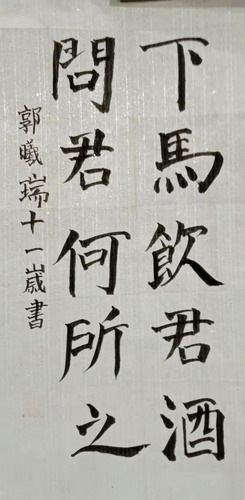 下馬飲君酒
問君何所之
郭曦瑞十一歲書